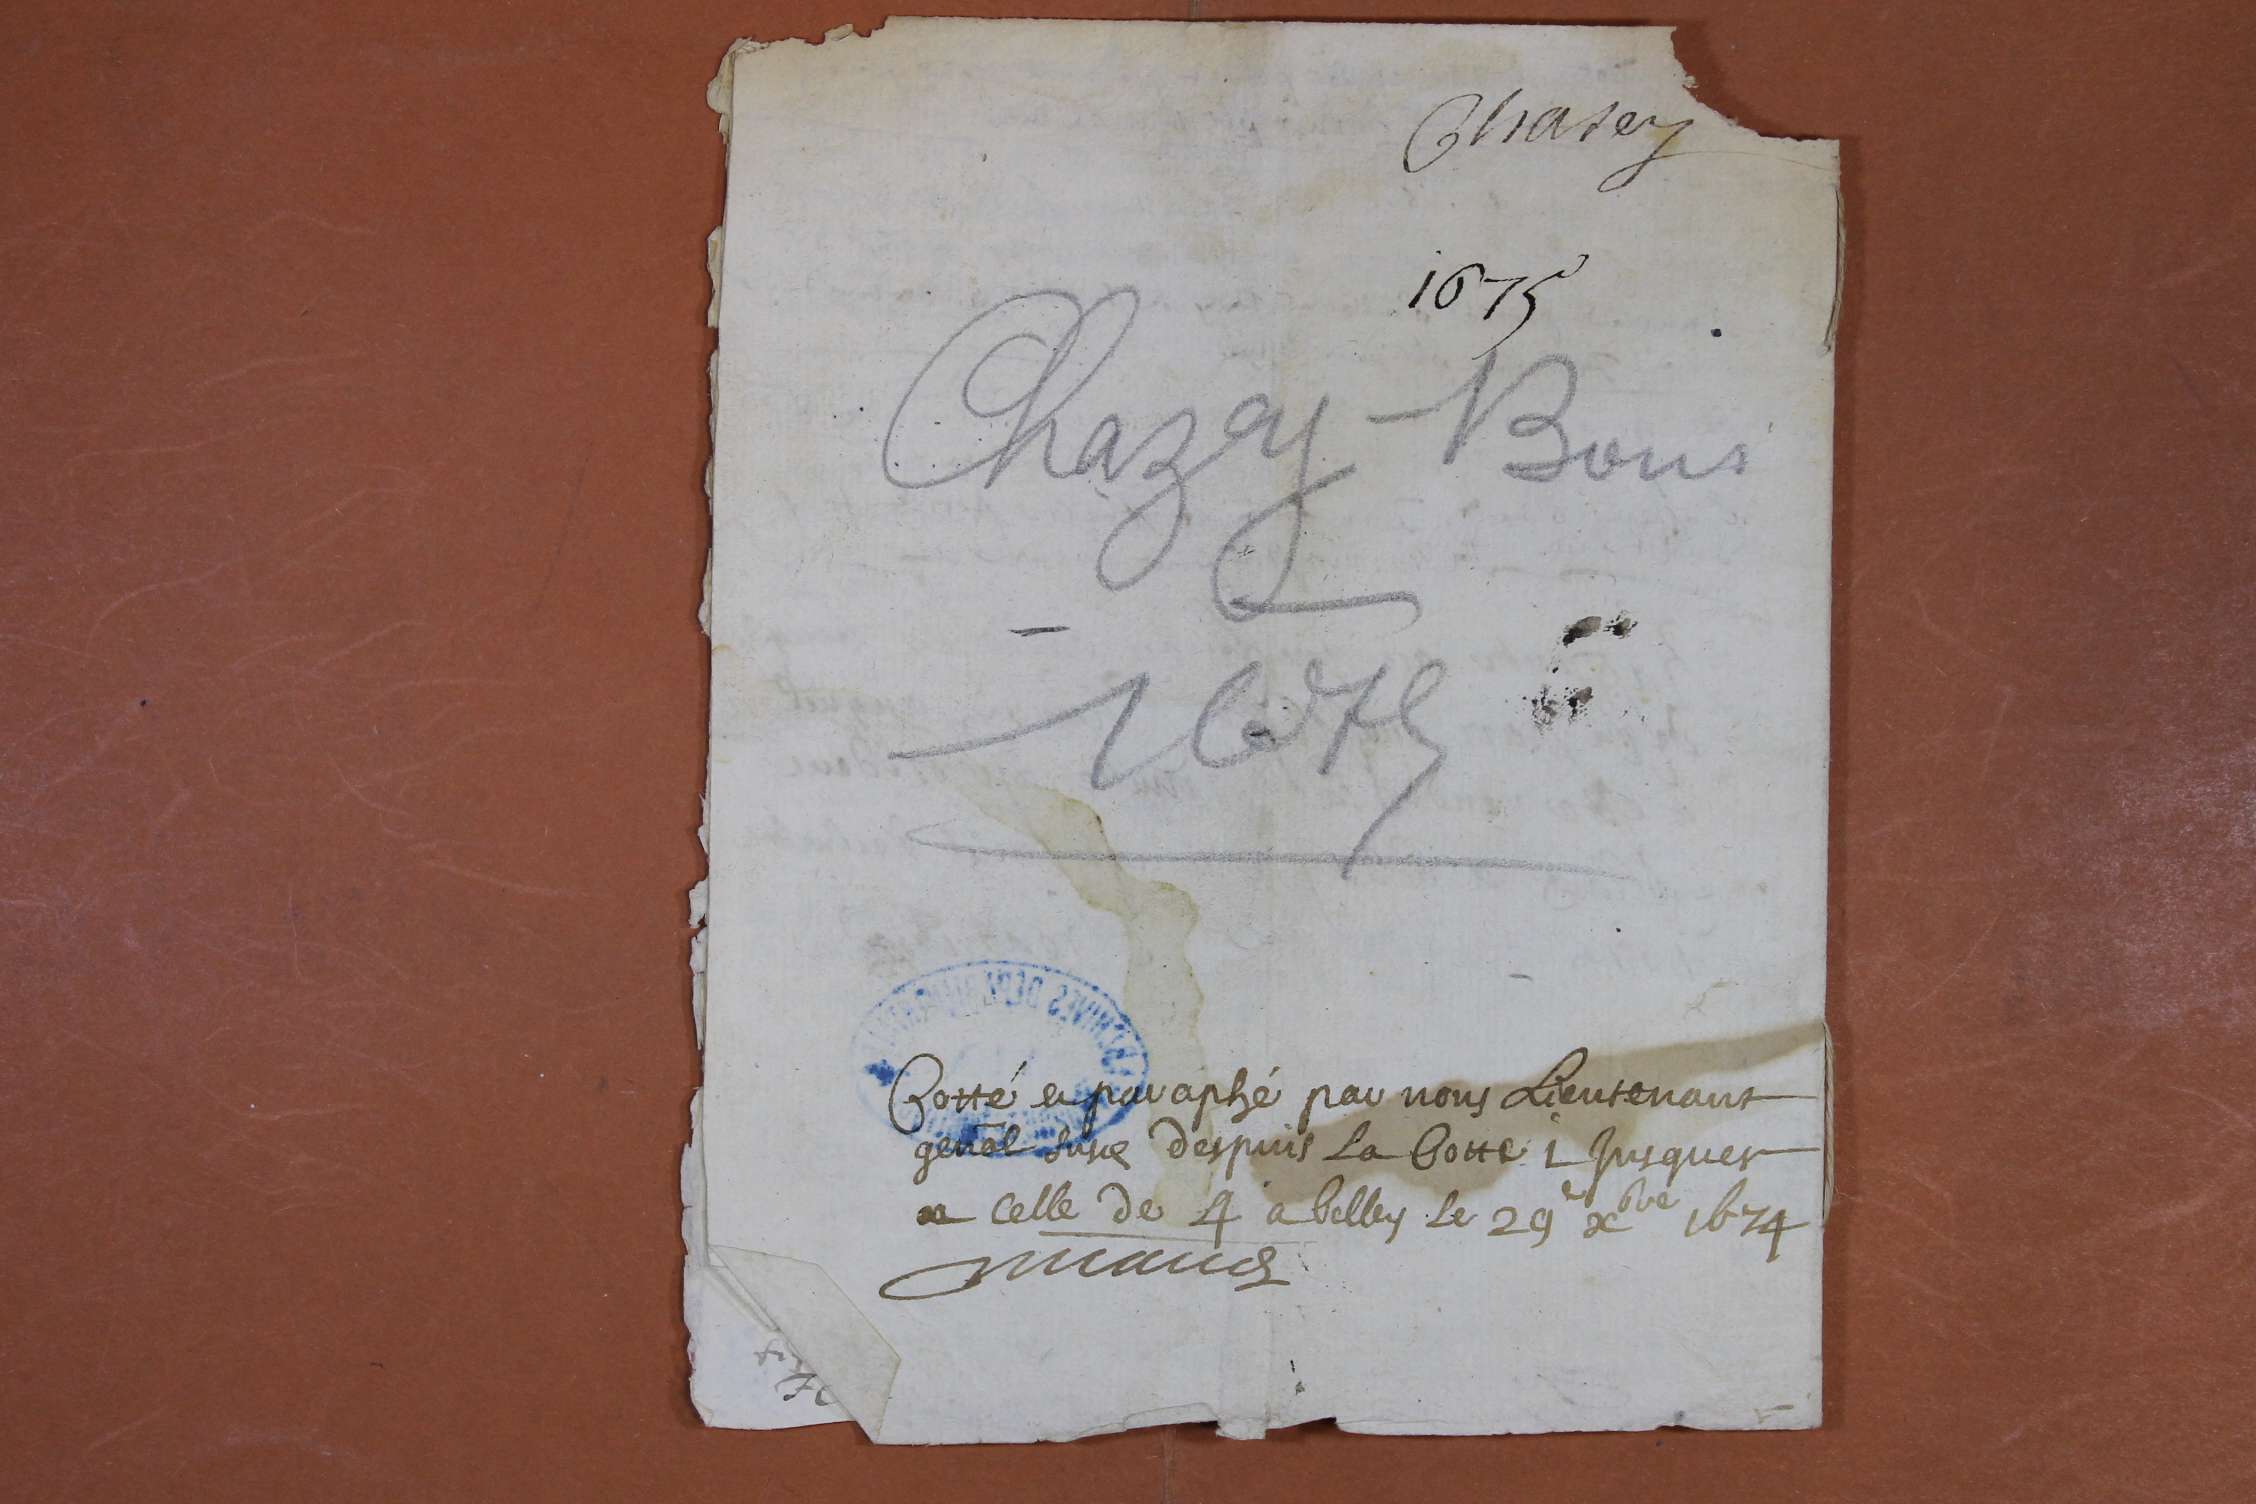 Chasey
1675
Chazey-Bons
1675
Cotté et paraphé par nous Lieutenant
genal susd despuis La Cotte 1 Jusques
a Celle de 4 a belley Le 29e xbre 1674